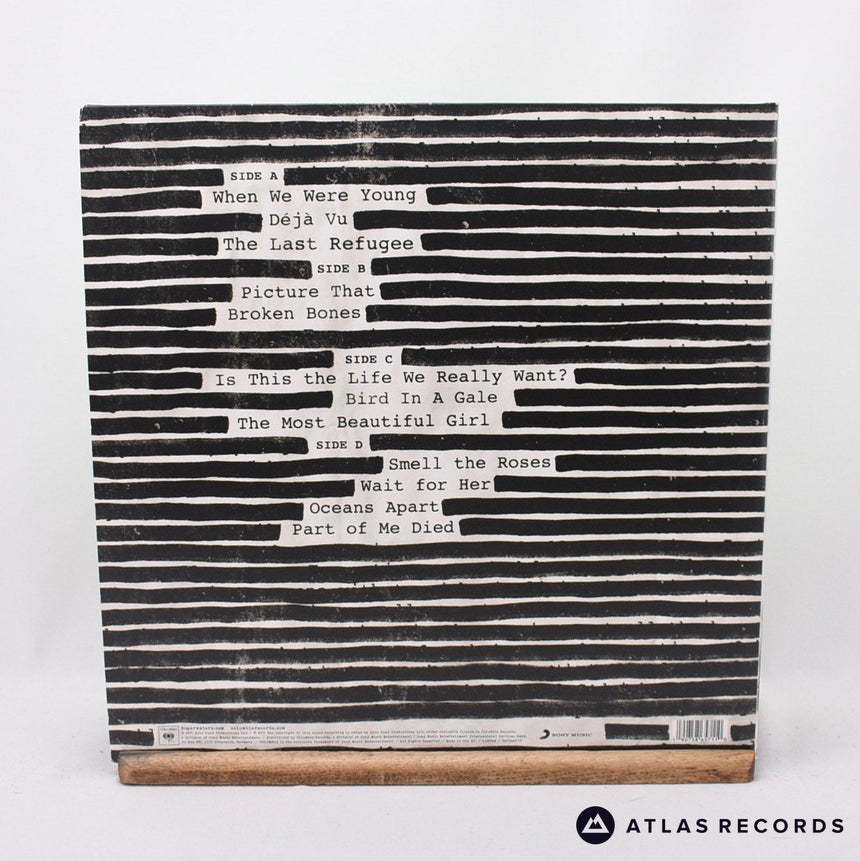 SIDE A
When We Were Young
Déjà Vu
The Last Refugee
SIDE B
Picture That
Broken Bones
SIDE C
Is This the Life We Really Want?
Bird In A Gale
The Most Beautiful Girl
SIDE D
Smell the Roses
Wait for Her
Oceans Apart
Part of Me Died
SONY MUSIC
ATLAS RECORDS